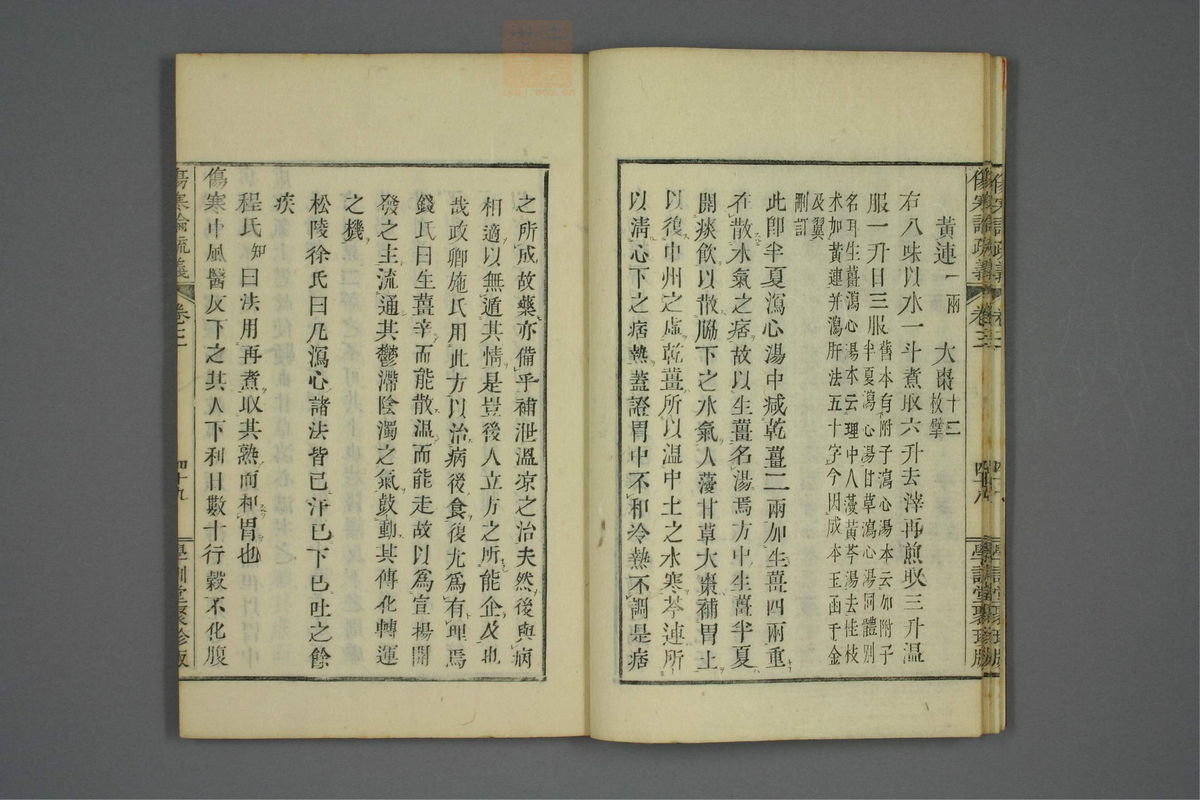 黃連一兩　大棗十二枚擘
右八味以水一斗煮取六升去滓再煎取三升溫
服一升日三服舊本有附子瀉心湯本云加附子
半夏瀉心湯甘草瀉心湯同體別
名耳生薑瀉心湯本云理中人蓡黃芩湯去桂枝
朮加黃連并瀉肝法五十字今因成本玉函千金
及翼
刪訂
此卽半夏瀉心湯中減乾薑二兩加生薑四兩重
在散水氣之痞故以生薑名湯焉方中生薑半夏
開痰飮以散脇下之水氣人蓡甘草大棗補胃土
以復中州之虛乾薑所以温中土之水寒芩連所
以淸心下之痞熱蓋證胃中不和冷熱不調是痞
之所成故藥亦備乎補泄溫凉之治夫然後與病
相適以無遁其情是豈後人立方之所能企及也
哉政卿施氏用此方以治病後食復尤爲有理焉
錢氏曰生薑辛而能散温而能走故以爲宣楊開
發之主流通其鬱滯陰濁之氣鼓動其傳化轉運
之機
松陵徐氏曰凡瀉心諸法皆已汗已下已吐之餘
疾
程氏知曰法用再煮取其熟而和胃也
傷寒中風醫反下之其人下利日數十行穀不化腹
傷寒論疏義　卷三　四十八　學訓堂聚珍版
傷寒論疏義　卷三　四十九　學訓堂聚珍版